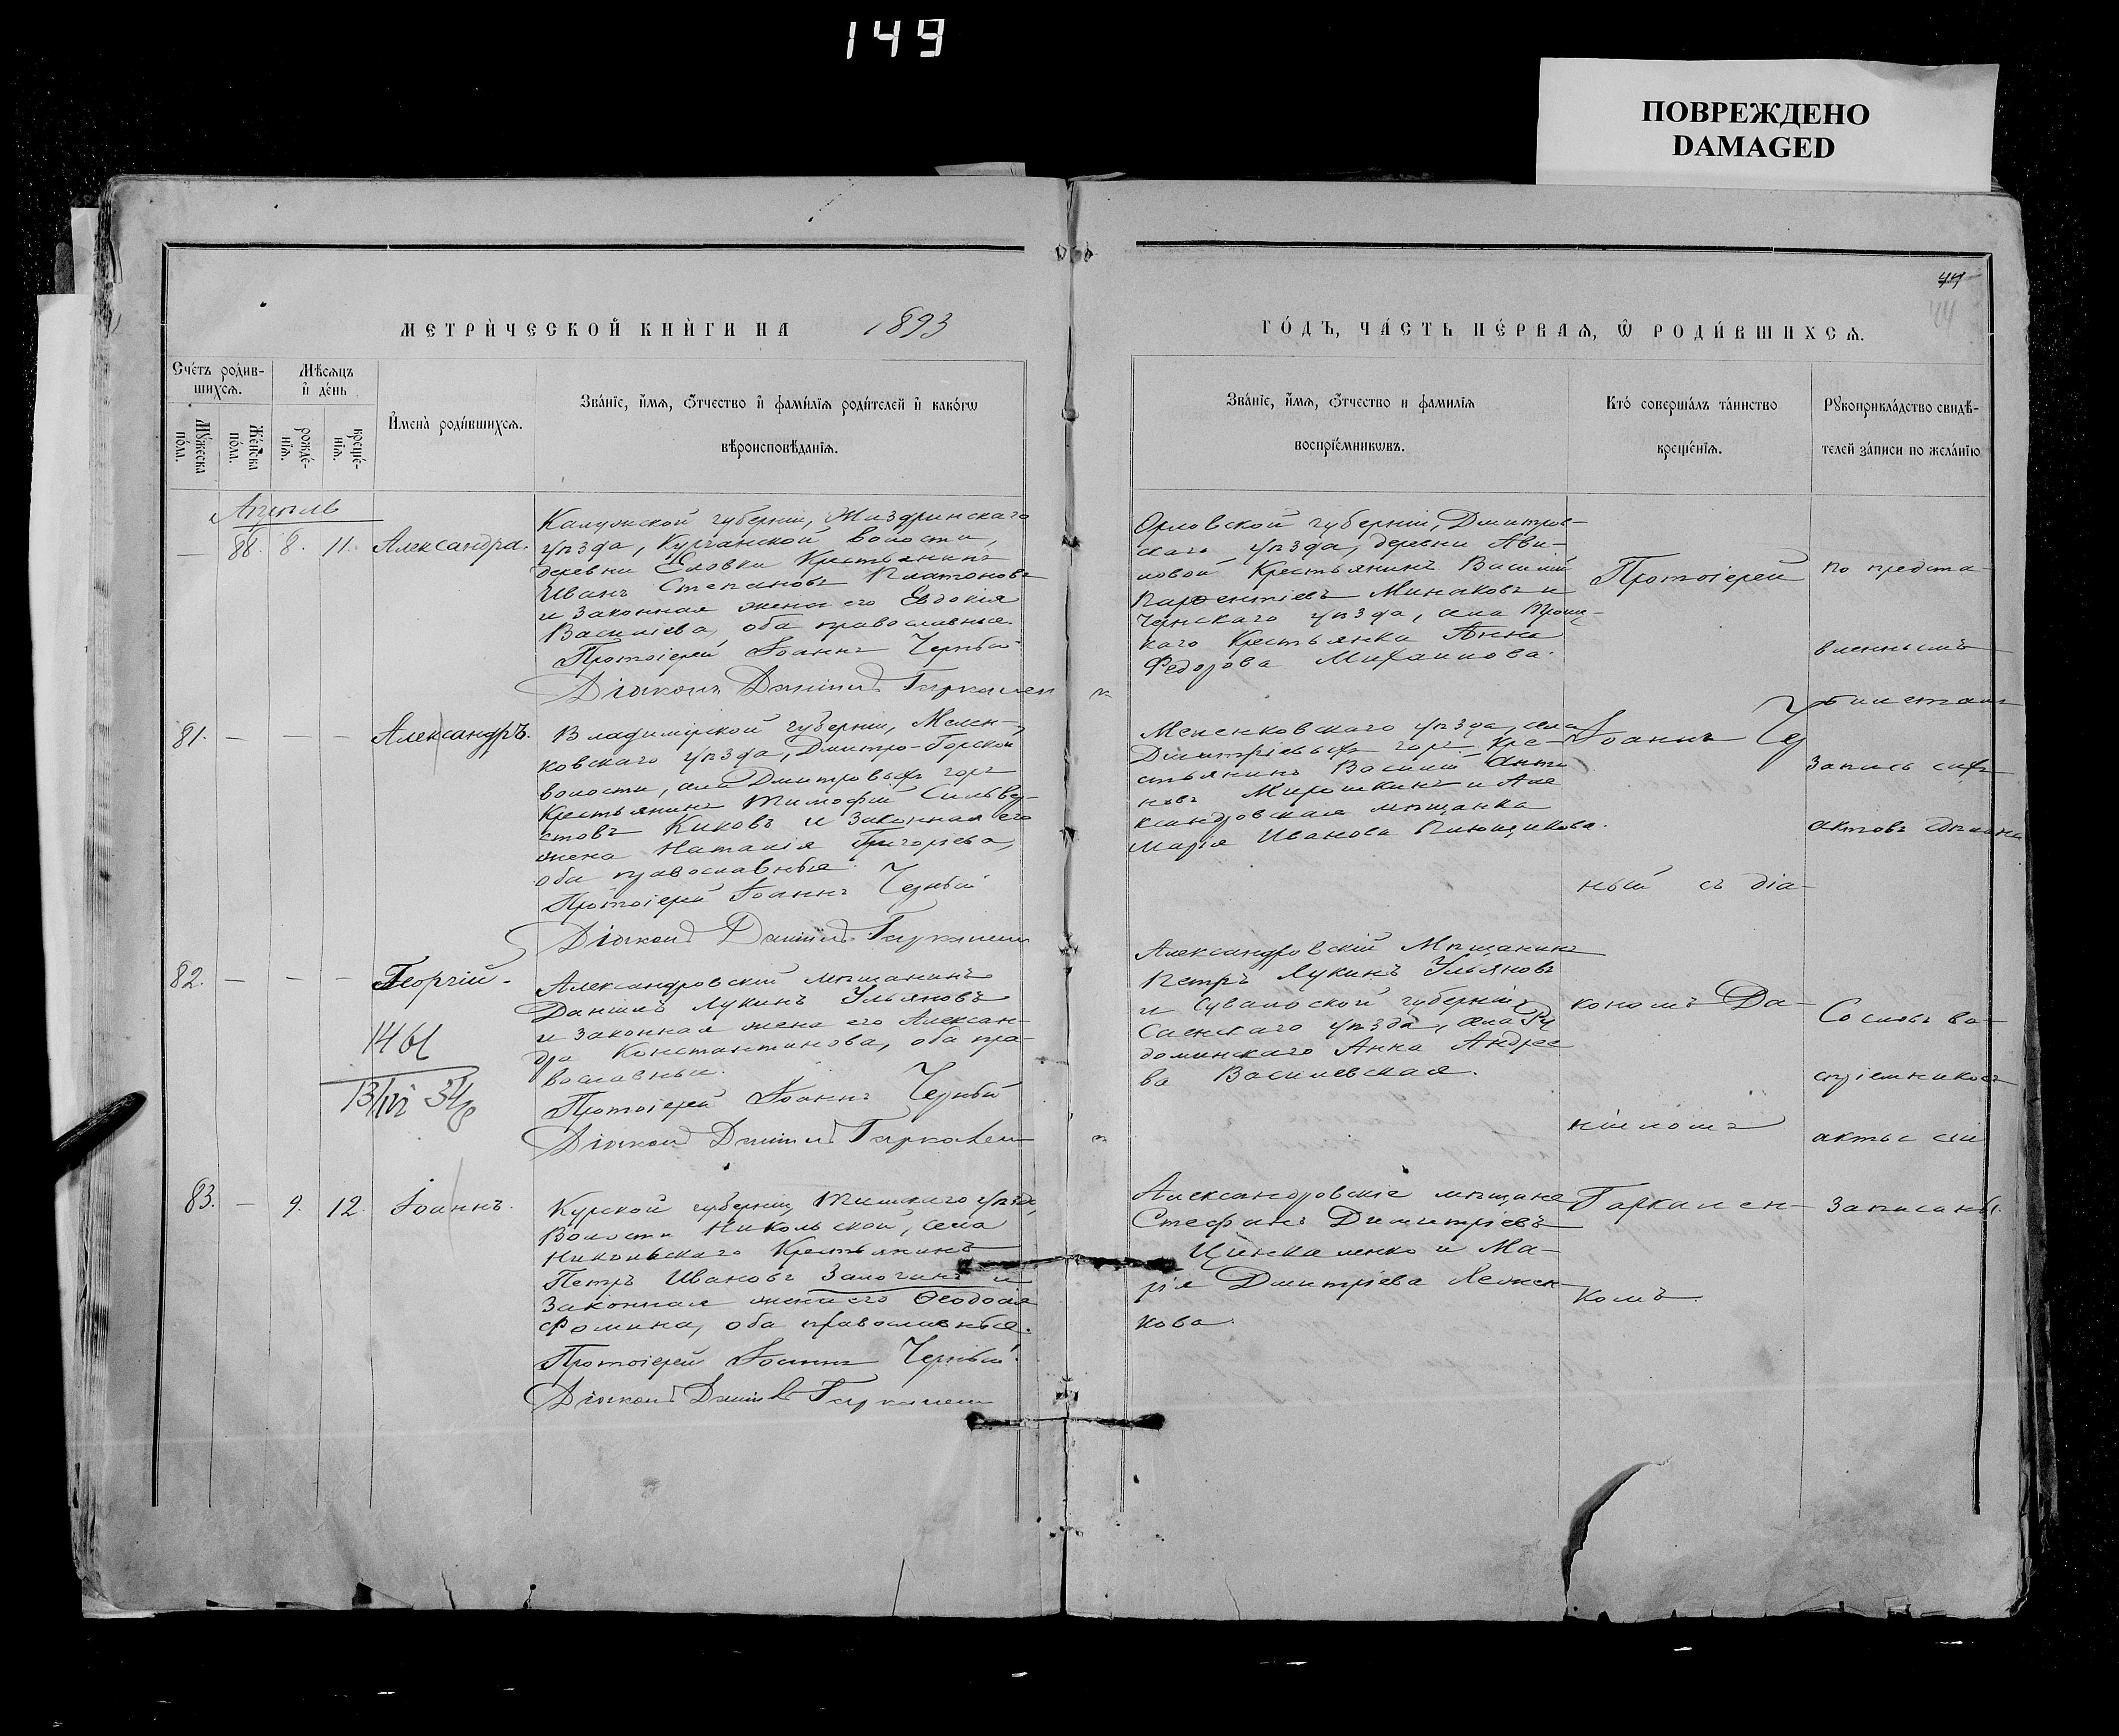 149
ПОВРЕЖДЕНО
DAMAGED
44
44
МЕТРИ́ЧЕСКОЙ КНИ́ГИ НА 1893
ГО́ДЪ, ЧА́СТЬ ПЕ́РВАЯ, Ѡ РОДИ́ВШИХСЯ.
Сче́тъ роди́в-
шихся.
Му́жеска по́ла.
Же́нска по́ла.
Мѣ́сяцъ
и де́нь
рожде́-
нія.
креще́-
нія.
И҆мена̀ роди́вшихся.
Зва́ніе, и҆́мя, ѻ҆́тчество и҆ фами́лія роди́телей и҆ како́гѡ
вѣроисповѣ́данія.
Зва́ніе, и҆́мя, ѻ҆́тчество и фами́лія
воспріе́мникѡвъ.
Кто̀ соверша́лъ та́инство
креще́нія.
Рꙋкоприкла́дство свидѣ́-
телей за́писи по жела́нію
Апрель
— 88. 8. 11. Александра.
Калужской губерніи, Жиздринскаго
уѣзда, Курганской волости,
деревни Еловки Крестьянинъ
Иванъ Степановъ Платоновъ
и законная жена его Евдокія
Василіева, оба православные.
Протоіерей Іоаннъ Черный
Діаконъ Даніилъ Гаркален
Орловской губерніи, Дмитров-
скаго уѣзда, деревни Ави-
ловой Крестьянинъ Василій
Парѳентіевъ Минаковъ и
Чернскаго уѣзда, села Троиц-
каго Крестьянка Анна
Федорова Михаилова.
81. — — — Александръ.
Владимірской губерніи, Мелен-
ковскаго уѣзда, Дмитро-Горской
волости, села Дмитровыхъ горъ
Крестьянинъ Тимофей Сильвер-
стовъ Киковъ и законная его
жена Наталія Григоріева,
оба православные.
Протоіерей Іоаннъ Черный
Діаконъ Даніилъ Гаркален
Меленковскаго уѣзда, села
Дмитріевыхъ горъ Кре-
стьянинъ Василій Анти
новъ Мирошкинъ и Але
ксандровская мѣщанка
Марія Иванова
82. — — — Георгій.
1461
Александровскій мѣщанинъ
Даніилъ Лукинъ Ульяновъ
и законная жена его Алексан-
дра Константинова, оба пра-
вославные.
Протоіерей Іоаннъ Черный
Діаконъ Даніилъ Гаркален
Александровскій Мѣщанинъ
Петръ Лукинъ Ульяновъ
и Сувалкской губерніи
уѣзда, села Ру
доминскаго Анна Андрее
ва Василевская.
83. — 9. 12. Іоаннъ.
Курской губерніи Тимскаго уѣзда,
Волости Никольской, села
Никольскаго Крестьянинъ
Петръ Ивановъ Залогинъ и
законная жена его Ѳеодосія
Фомина, оба православные.
Протоіерей Іоаннъ Черный.
Діаконъ Даніилъ Гаркален
Александровскіе мѣщане
Стефанъ Димитріевъ
и Ма-
рія Дмитріева
кова.
Протоіерей
Іоаннъ Чер
ный съ діа-
кономъ Да-
ніиломъ
Гаркален-
комъ.
по предста-
вленнымъ
билетамъ
Запись сихъ
актовъ сдѣлана
Со словъ во-
спріемниковъ
акты сіи
записаны.